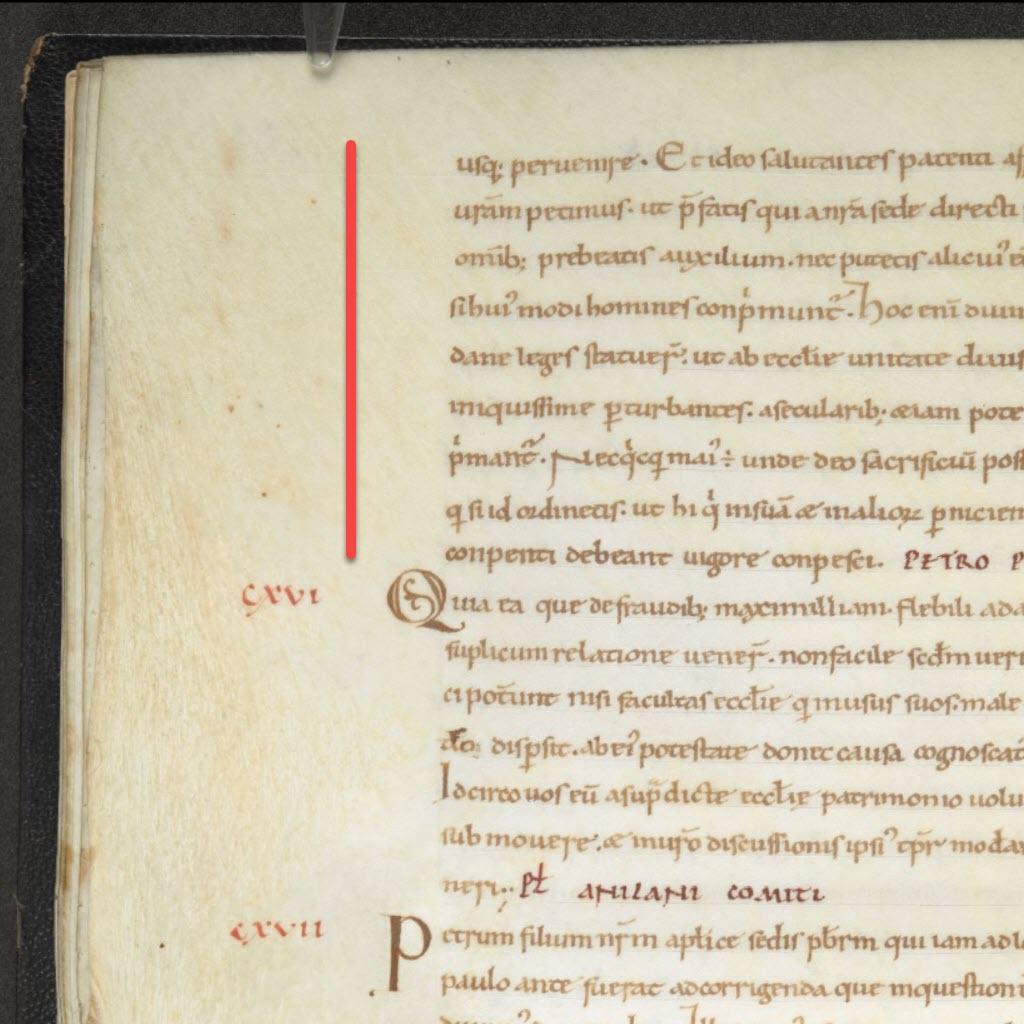 usq; peruenire. Et ideo salutantes patenti aff
urām petimus. ut p̄fatis qui a nr̄a sede directi
omib; prebeatis auxilium. nec putetis alicui᾽
sibui᾽ modi homines conp̍munt᷑. Hoc enī diuin
dane leges statuer̄. ut ab eccl̄ie unitate diuis
iniquissime ꝑturbantes. a secularib; æiam pote
p̍mant᷑. Necq̍cq̄ mai᾽ ÷ unde deo sacrificiū poss
q si id ordinetis. ut hi q̍ insuā æ maliorꝝ ꝑnicien
conpenti debeant uigore conpesci. PETRO P
CXVI Quia ea que de fraudib; maximilliam. flebili ada
suplicum relatione uener̄. non facile sc̄dm ueri
ci pot̄unt nisi facultas eccl̄ie q inusus suos. male
dispsit. ab ei᾽ potestate donec causa cognoscat
Idcirco uos eū a sup̄dicte eccl̄ie patrimonio uolu
sub mouere. æ discussionis ipsi᾽ modar
neri.. PĿ ANILANI COMITI
CXVII Petrum filium nr̄m aplice sedis pb̄rm qui iam ad
paulo ante fuerat ad corrigenda que inquestioni